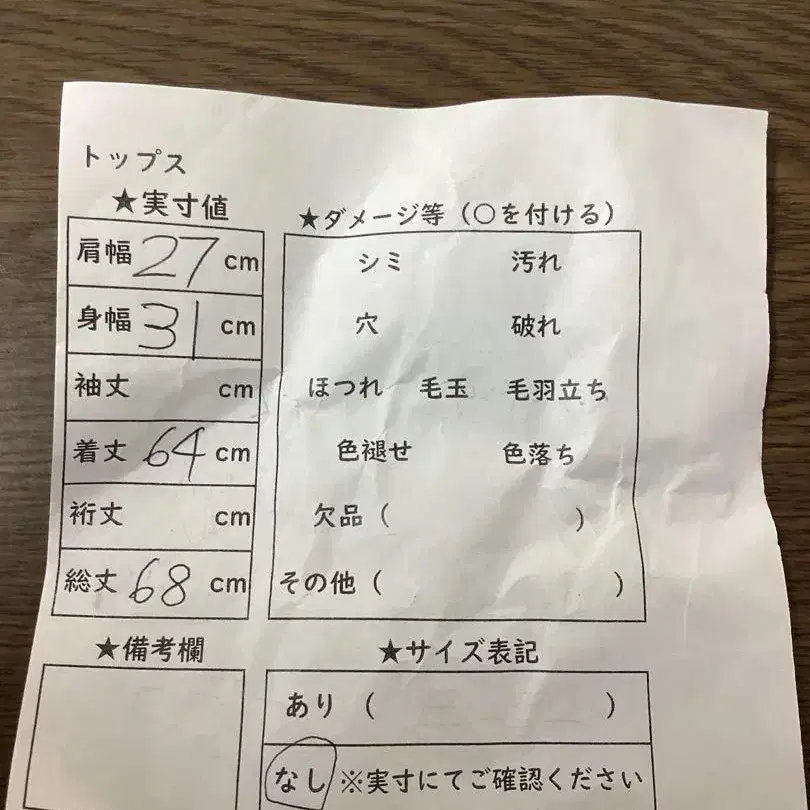 トップス
★実寸値
肩幅 27 cm
身幅 31 cm
袖丈 cm
着丈 64 cm
裄丈 cm
総丈 68 cm
★ダメージ等(○を付ける)
シミ 汚れ
穴 破れ
ほつれ 毛玉 毛羽立ち
色褪せ 色落ち
欠品( )
その他( )
★備考欄
★サイズ表記
あり( )
なし ※実寸にてご確認ください